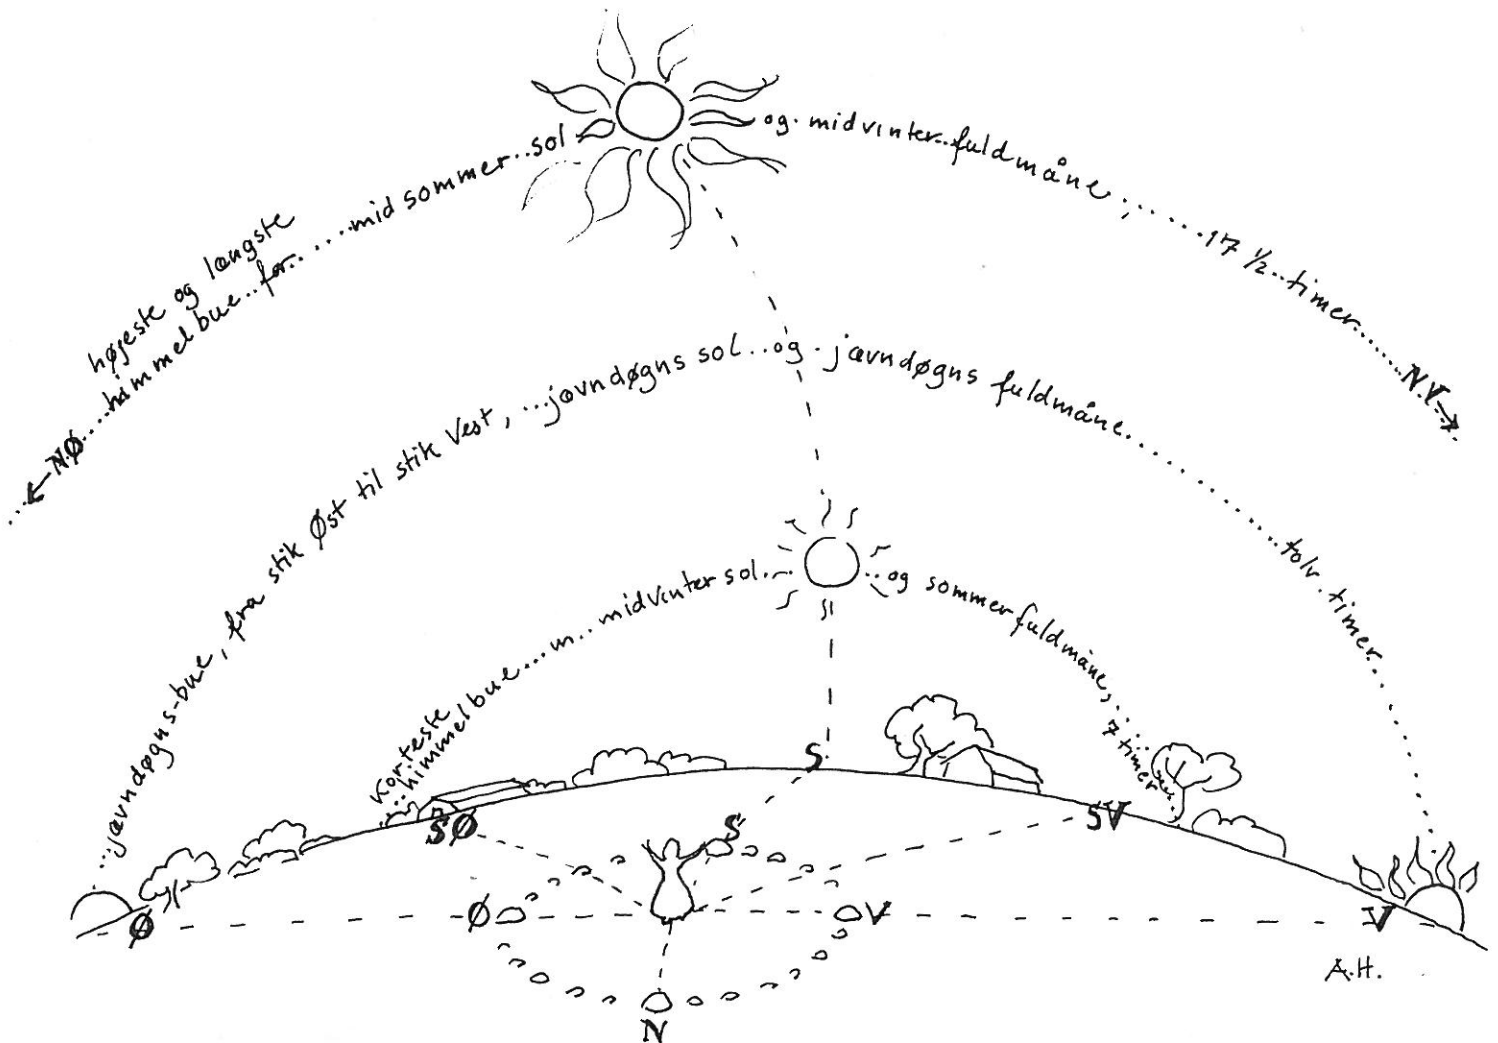 højeste og længste
← NØ....himmelbue..for.....mid sommer..sol og. midvinter..fuldmåne,.......17 ½..timer.......N.V→
...jævndøgns-bue, fra stik Øst til stik Vest, ...jævndøgns sol...og. jævndøgns fuldmåne..............tolv. timer...
Korteste
..himmelbue...m.. midvinter sol.. ..og sommerfuldmåne,...7 timer
S
SØ
SV
S
Ø
Ø
V
V
A.H.
N